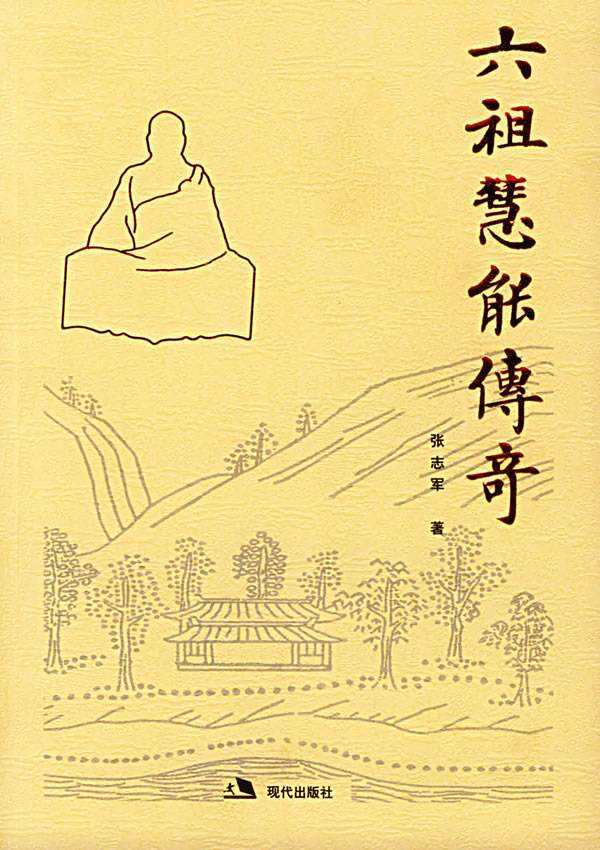 六祖慧能傳奇
张志军 著
现代出版社